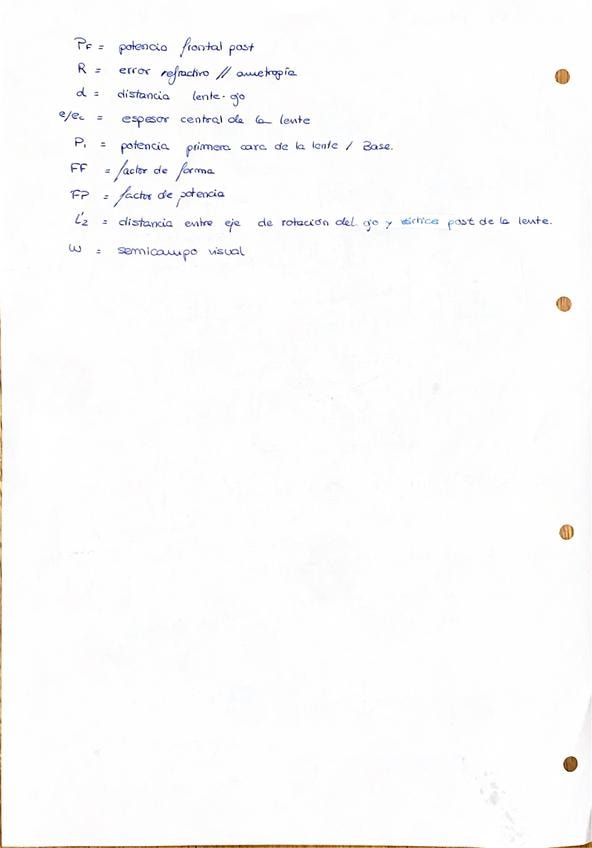 PF = potencia frontal post
R = error refractivo // ametropía
d = distancia lente-ojo
e/ec = espesor central de la lente
P1 = potencia primera cara de la lente / Base.
FF = factor de forma
FP = factor de potencia
L'2 = distancia entre eje de rotación del ojo y vértice post de la lente.
W = semicampo visual